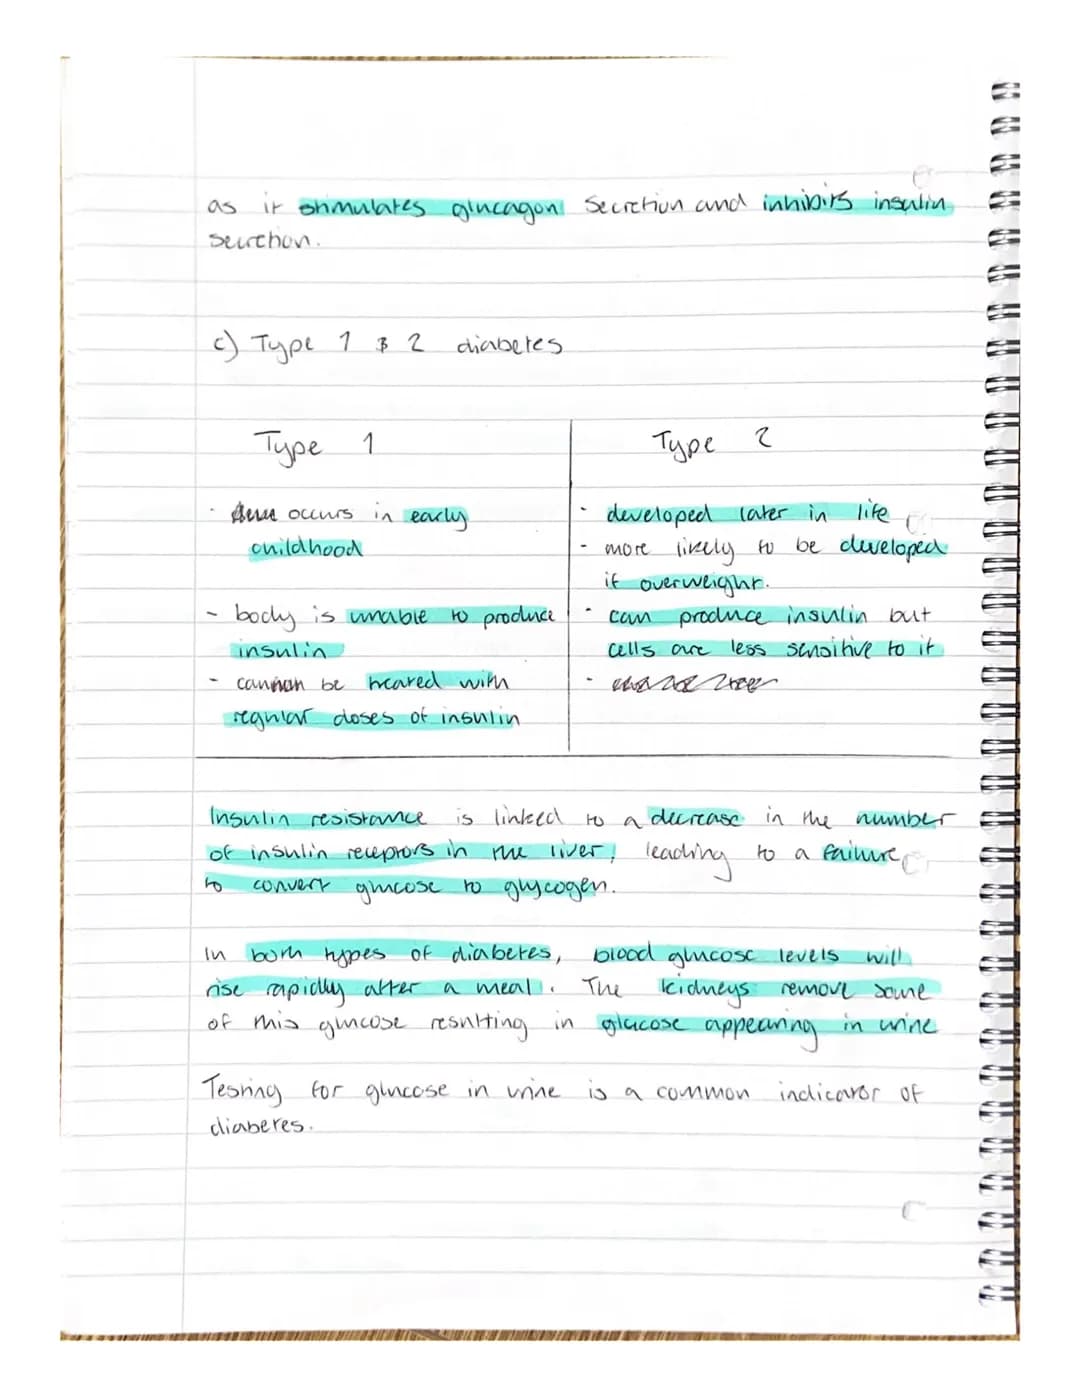 as it stimulates glucagon secretion and inhibits insulin
secretion.
c) Type 1 & 2 diabetes
Type 1
- occurs in early
childhood
- body is unable to produce
insulin
- can be treated with
regular doses of insulin
Type 2
- developed later in life
- more likely to be developed
if overweight.
- can produce insulin but
cells are less sensitive to it
-
Insulin resistance is linked to a decrease in the number
of insulin receptors in the liver, leading to a failure
to convert glucose to glycogen.
In both types of diabetes, blood glucose levels will
rise rapidly after a meal. The kidneys remove some
of this glucose resulting in glucose appearing in urine
Testing for glucose in urine is a common indicator of
diabetes.